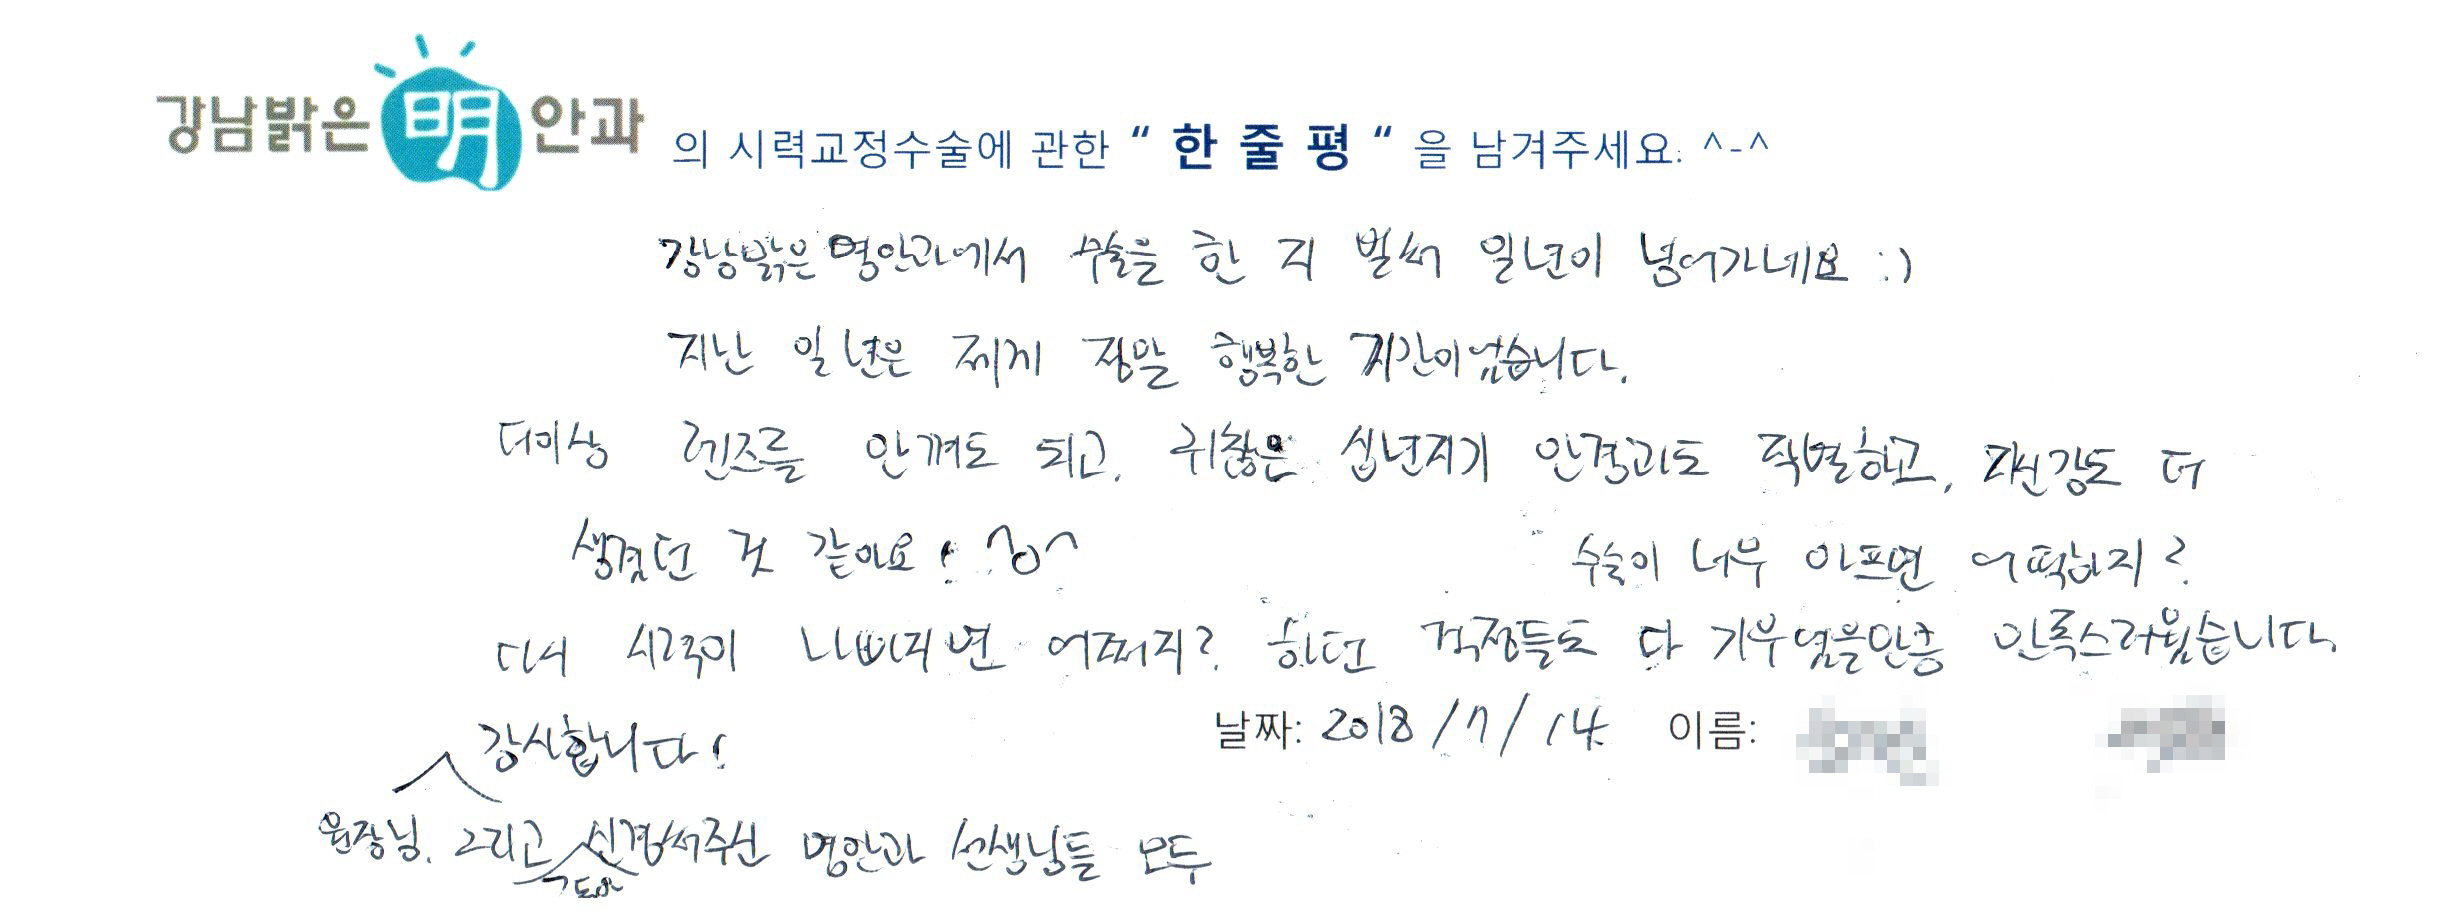 강남밝은 明 안과 의 시력교정수술에 관한 " 한 줄 평 " 을 남겨주세요. ^-^
강남밝은명안과에서 수술을 한 지 벌써 일년이 넘어가네요 :)
지난 일년은 제게 정말 행복한 시간이었습니다.
더이상 렌즈를 안껴도 되고, 귀찮은 십년지기 안경과도 작별하고, 자신감도 더
생겼던 것 같아요! ^o^ 수술이 너무 아프면 어떡하지?
다시 시력이 나빠지면 어쩌지? 하던 걱정들도 다 기우였을만큼 만족스러웠습니다.
감사합니다!
날짜: 2018/7/14 이름:
원장님, 그리고 신경써주신 명안과 선생님들 모두
그동안